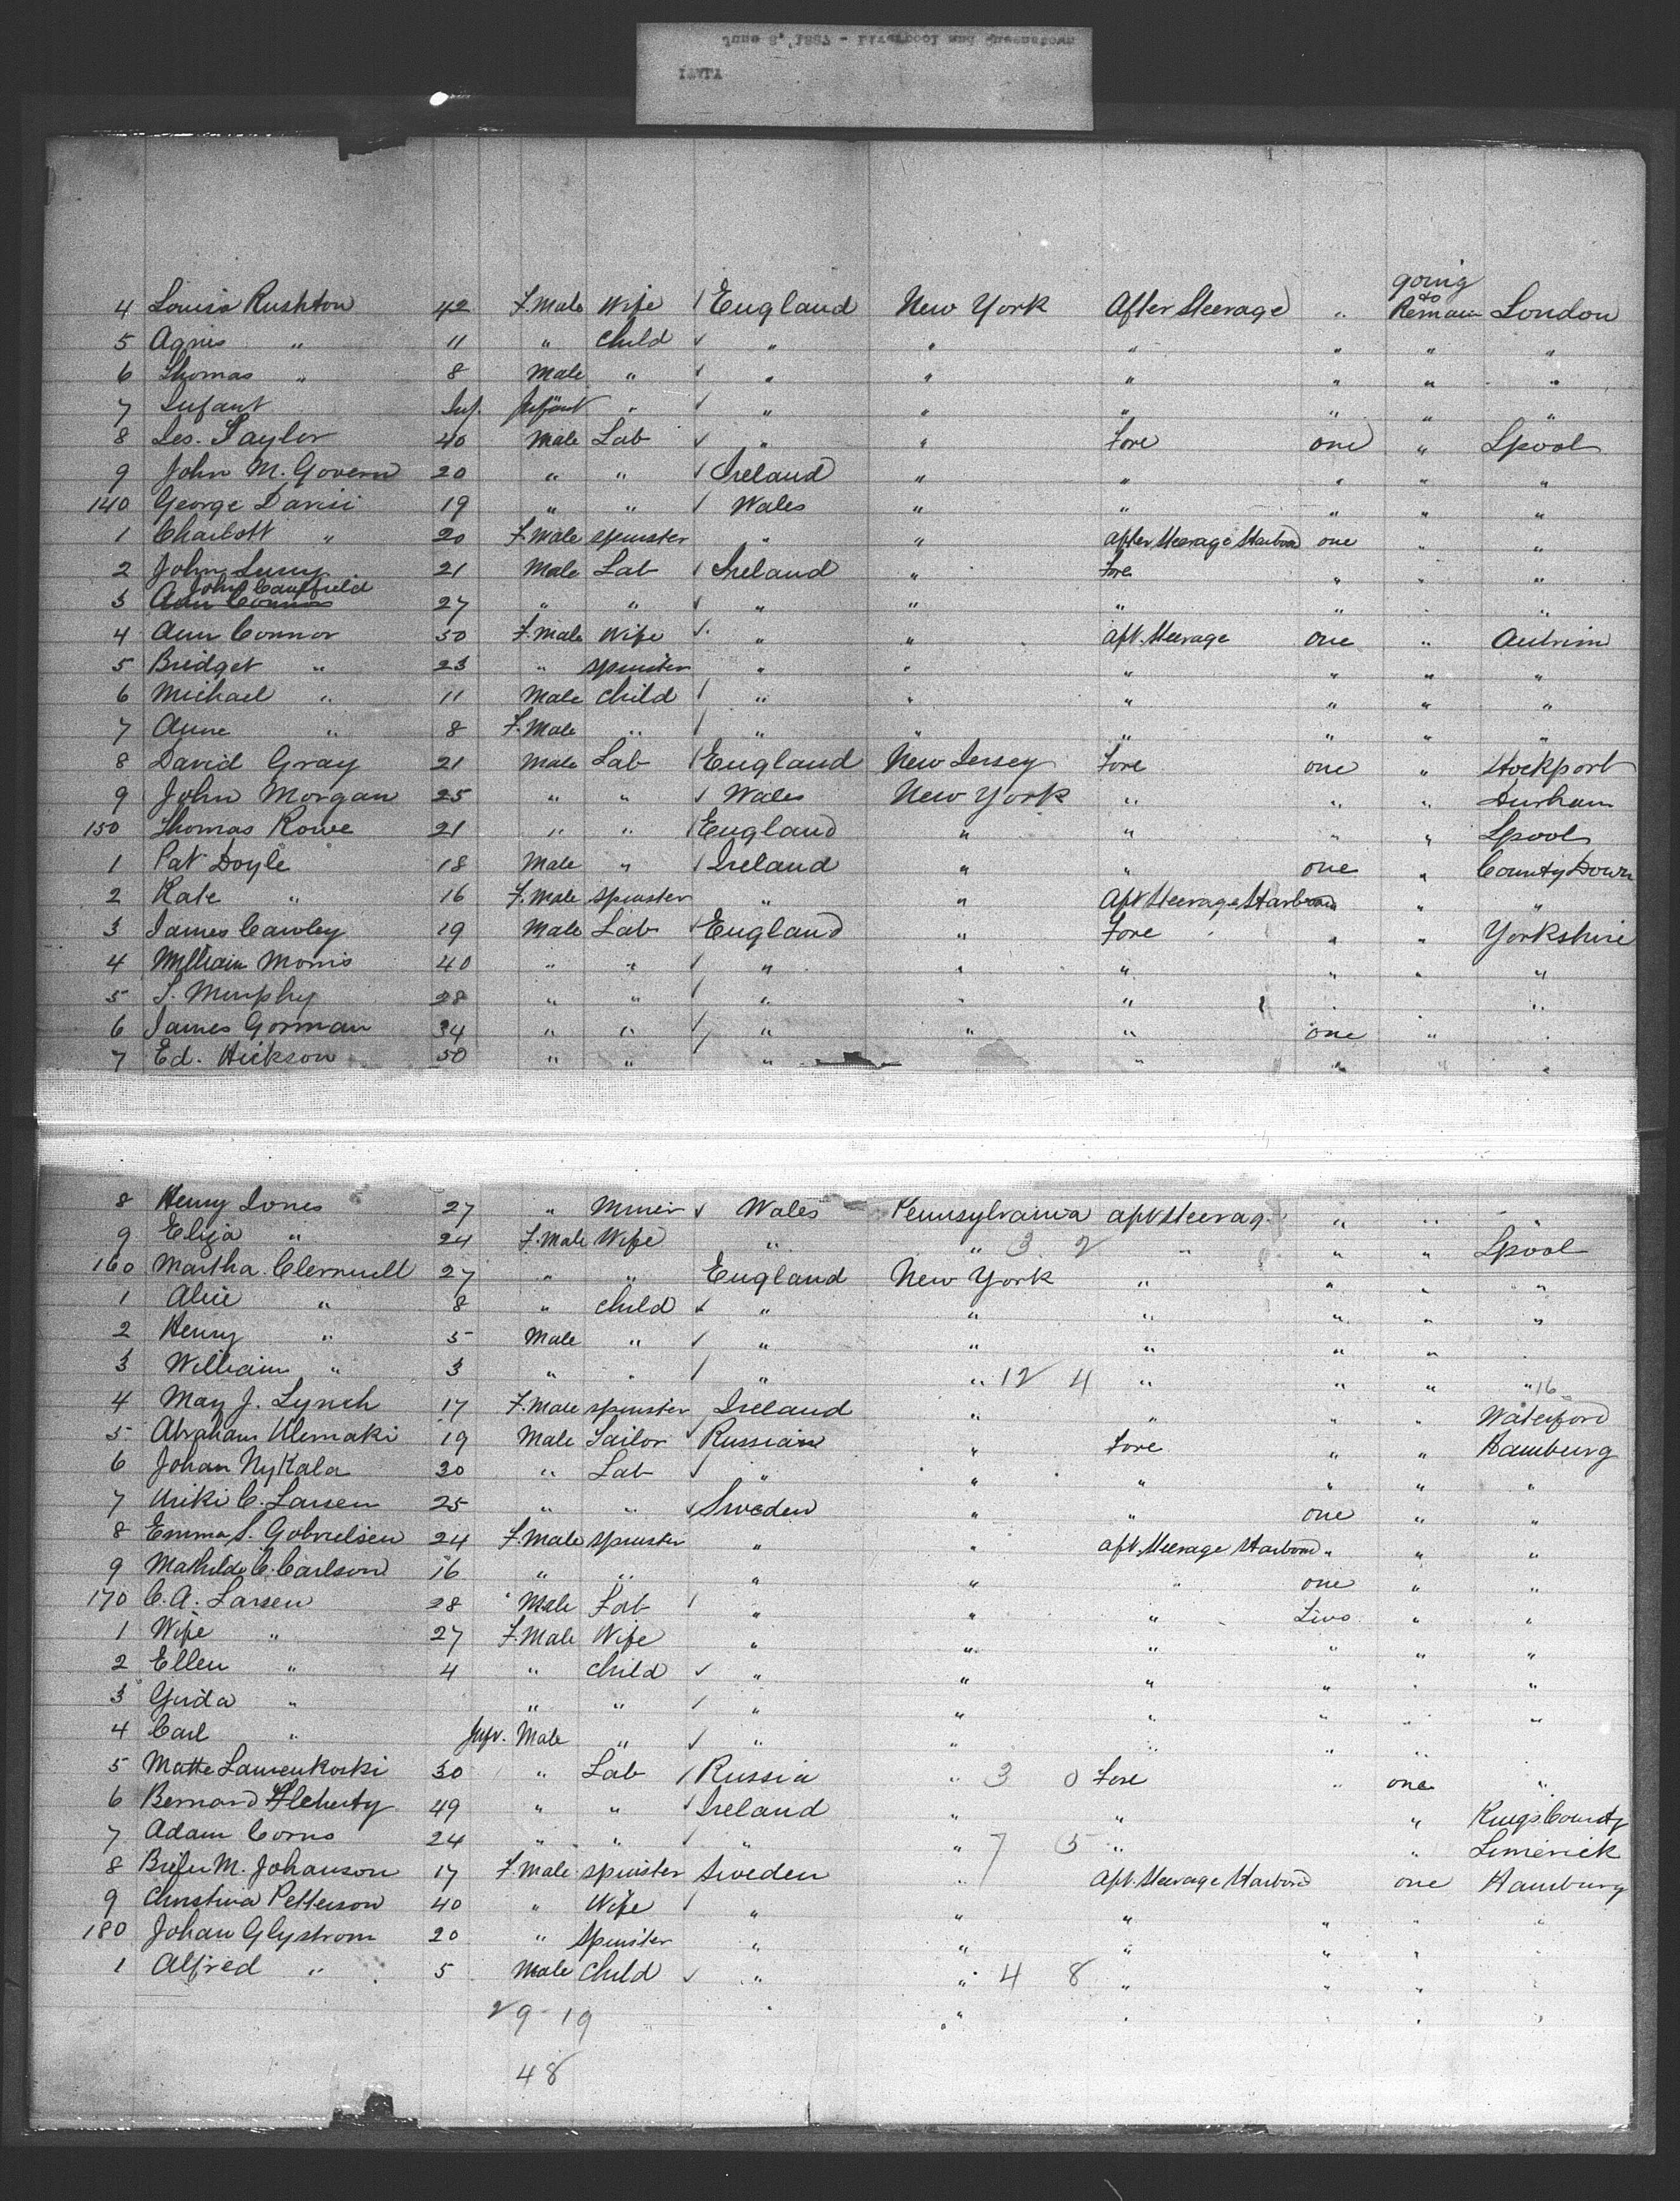 June 8, 1887 - Liverpool and Queenstown
going
4 Louisa Rushton 42 F.Male Wife / England New York After Steerage " to Remain London
5 Agnes " 11 " Child ✓ " " " " " "
6 Thomas " 8 Male " ✓ " " " " " "
7 Infant Inf. Infant " ✓ " " " " " "
8 Jos. Taylor 40 Male Lab ✓ " " Fore one " Lpool
9 John M. Govern 20 " " ✓ Ireland " " " " "
140 George Davis 19 " " / Wales " " " " "
1 Charlott " 20 F.Male spinster " " After Steerage Starboard one " "
2 John 21 Male Lab / Ireland " Fore " " "
John Caulfield
3 Ann Connor 27 " " ✓ " " " " " "
4 Ann Connor 50 F.Male Wife ✓ " " Aft. Steerage one " Antrim
5 Bridget " 23 " spinster " " " " " "
6 Michael " 11 Male Child / " " " " " "
7 Anne " 8 F.Male " / " " " " " "
8 David Gray 21 Male Lab / England New Jersey Fore one " Stockport
9 John Morgan 25 " " ✓ Wales New York " " " Durham
150 Thomas Rowe 21 " " / England " " " " Lpool
1 Pat Doyle 18 Male " / Ireland " " one " County Down
2 Kate " 16 F.Male spinster " " Aft Steerage Starboard " "
3 James Cawley 19 Male Lab ✓ England " Fore " " Yorkshire
4 William Morris 40 " " / " " " " " "
5 S. Murphy 28 " " / " " " " "
6 James Gorman 34 " " / " " " one " "
7 Ed. Hickson 50 " " " " " " "
8 Henry Jones 27 " Miner ✓ Wales Pennsylvania aft Steerag. " " "
9 Eliza " 24 F.Male Wife " " 3 2 " " " Lpool
160 Martha 27 " " England New York " " " "
1 Alice " 8 " Child ✓ " " " " " "
2 Henry " 5 Male " / " " " " "
3 William " 3 " " / " " 12 4 " " " " 16
4 May J. Lynch 17 F.Male spinster Ireland " " " " Waterford
5 Abraham Ulemaki 19 Male Tailor ✓ Russian " Fore " " Hamburg
6 Johan Nykala 30 " Lab ✓ " " " " " "
7 C. Larsen 25 " " ✓ Sweden " " one " "
8 Emma S. Gabrielsen 24 F.Male spinster " " aft. Steerage Starboard " " "
9 Mathilde C. Carlson 16 " " " " " one " "
170 C. A. Larsen 28 " Male Lab / " " " Two " "
1 Wife " 27 F.Male Wife " " " " " "
2 Ellen " 4 " Child ✓ " " " " " "
3 " " " / " " " " " "
4 Carl " Inf. Male " ✓ " " " " "
5 Matte 30 " Lab / Russia " 3 0 Fore " one "
6 Bernard Fleherty 49 " " ✓ Ireland " " " Kings County
7 Adam Corns 24 " " / " " 7 5 " " Limerick
8 M. Johanson 17 F.Male spinster Sweden " Aft. Steerage Starboard one Hamburg
9 Christina Petterson 40 " Wife / " " " " " "
180 Johan Glystrom 20 " spinster " " " " "
1 Alfred " 5 Male Child ✓ " " 4 8 " " "
29 - 19 " "
48